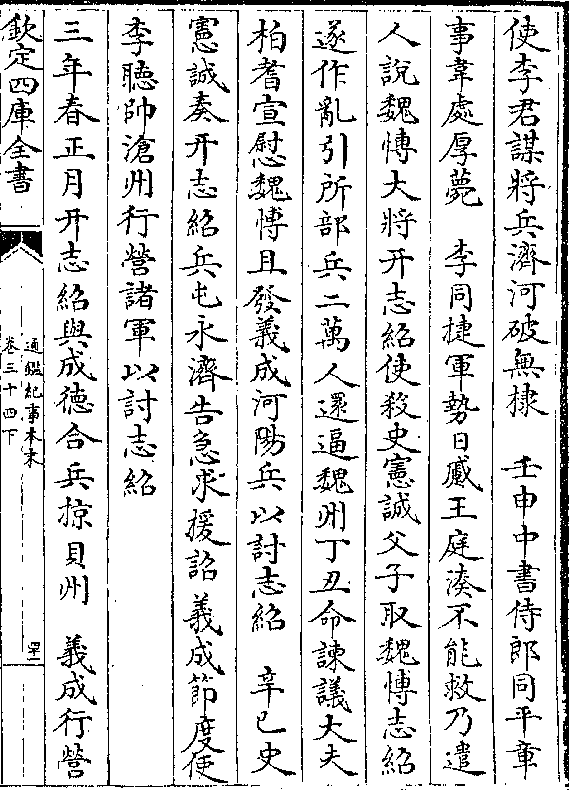 使李君謀將兵濟河破無棣　壬申中書侍郎同平章
事韋處厚薨　李同捷軍勢日蹙王庭湊不能救乃遣
人說魏博大將亓志紹使殺史憲誠父子取魏博志紹
遂作亂引所部兵二萬人還逼魏州丁丑命諫議大夫
柏耆宣慰魏博且發義成河陽兵以討志紹　辛巳史
憲誠奏亓志紹兵屯永濟告急求援詔義成節度使
李聽帥滄州行營諸軍以討志紹
三年春正月亓志紹與成德合兵掠貝州　義成行營
欽定四庫全書
通鑑紀事本末
卷三十四下
四十二